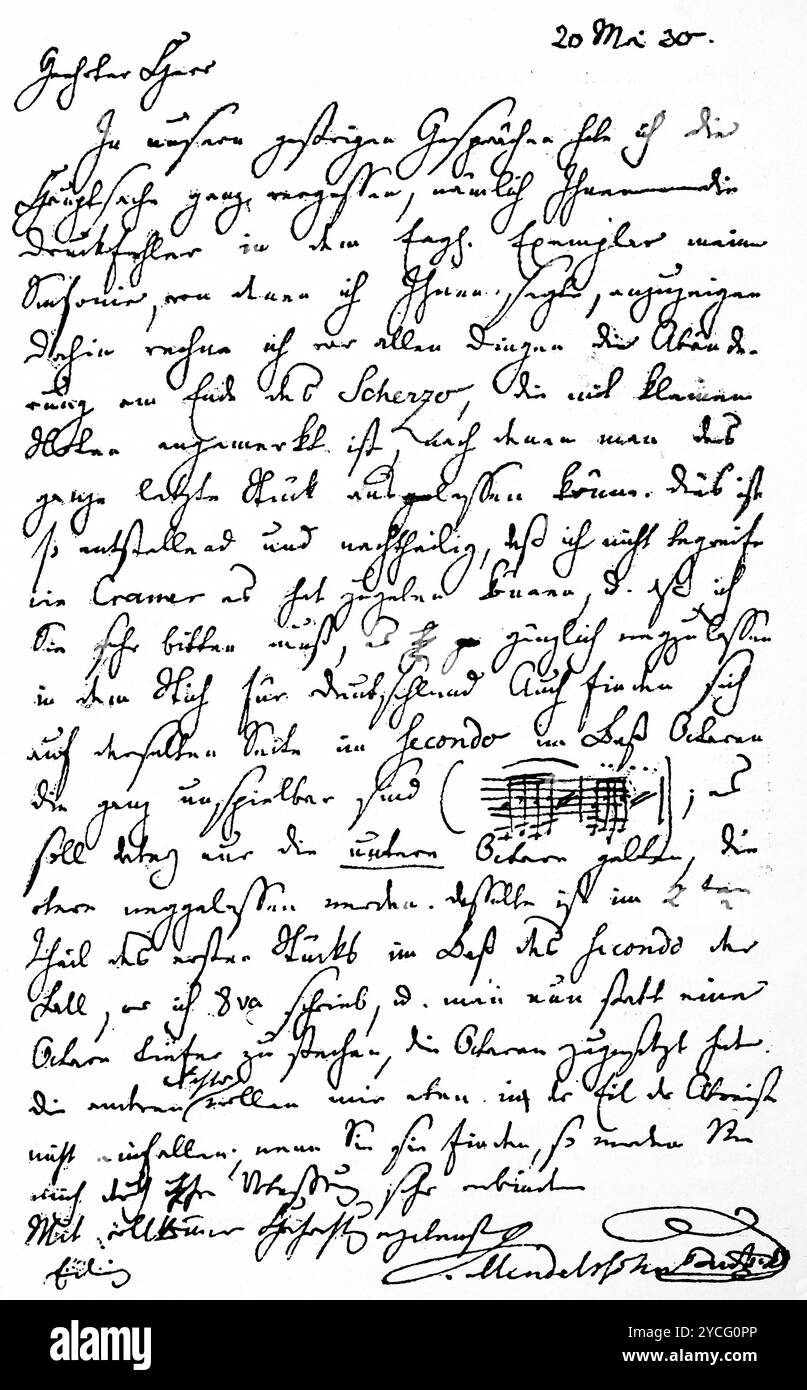 20 Mai 30.
Geehrter Herr
In unsern gestrigen Gesprächen habe ich die
Hauptsache ganz vergessen, nämlich Ihnen die
Druckfehler in dem Engl. Exemplar meiner
Sinfonie, von denen ich Ihnen sagte, anzuzeigen
Dahin rechne ich vor allen Dingen die Abände-
rung am Ende des Scherzo, die mit kleinen
Noten angemerkt ist, nach denen man das
ganze letzte Stück auslassen könne. Dies ist
so entstellend und nachtheilig, daß ich nicht begreife
wie Cramer es hat zugeben können, u. daß ich
Sie sehr bitten muß, es gänzlich wegzulassen
in dem Stich für Deutschland Auch finden sich
auf derselben Seite im Secondo im Baß Octaven
die ganz unspielbar sind ( ); es
soll nur die untere Octave gelten, die
obere weggelassen werden. Dasselbe ist im 2ten
Theil des ersten Stücks im Baß des Secondo der
Fall, wo ich 8va schrieb, u. man nun statt eine
Octave tiefer zu stechen, die Octaven zugesetzt hat.
Die andren wollen mir eben in der Eil der Abreise
nicht einfallen; wenn Sie sie finden, so werden Sie
mich durch Ihre Verbesserung sehr verbinden
Mit vollkommner Hochachtung
Mendelssohn Bartholdy
alamy
Image ID: 2YCG0PP
www.alamy.com